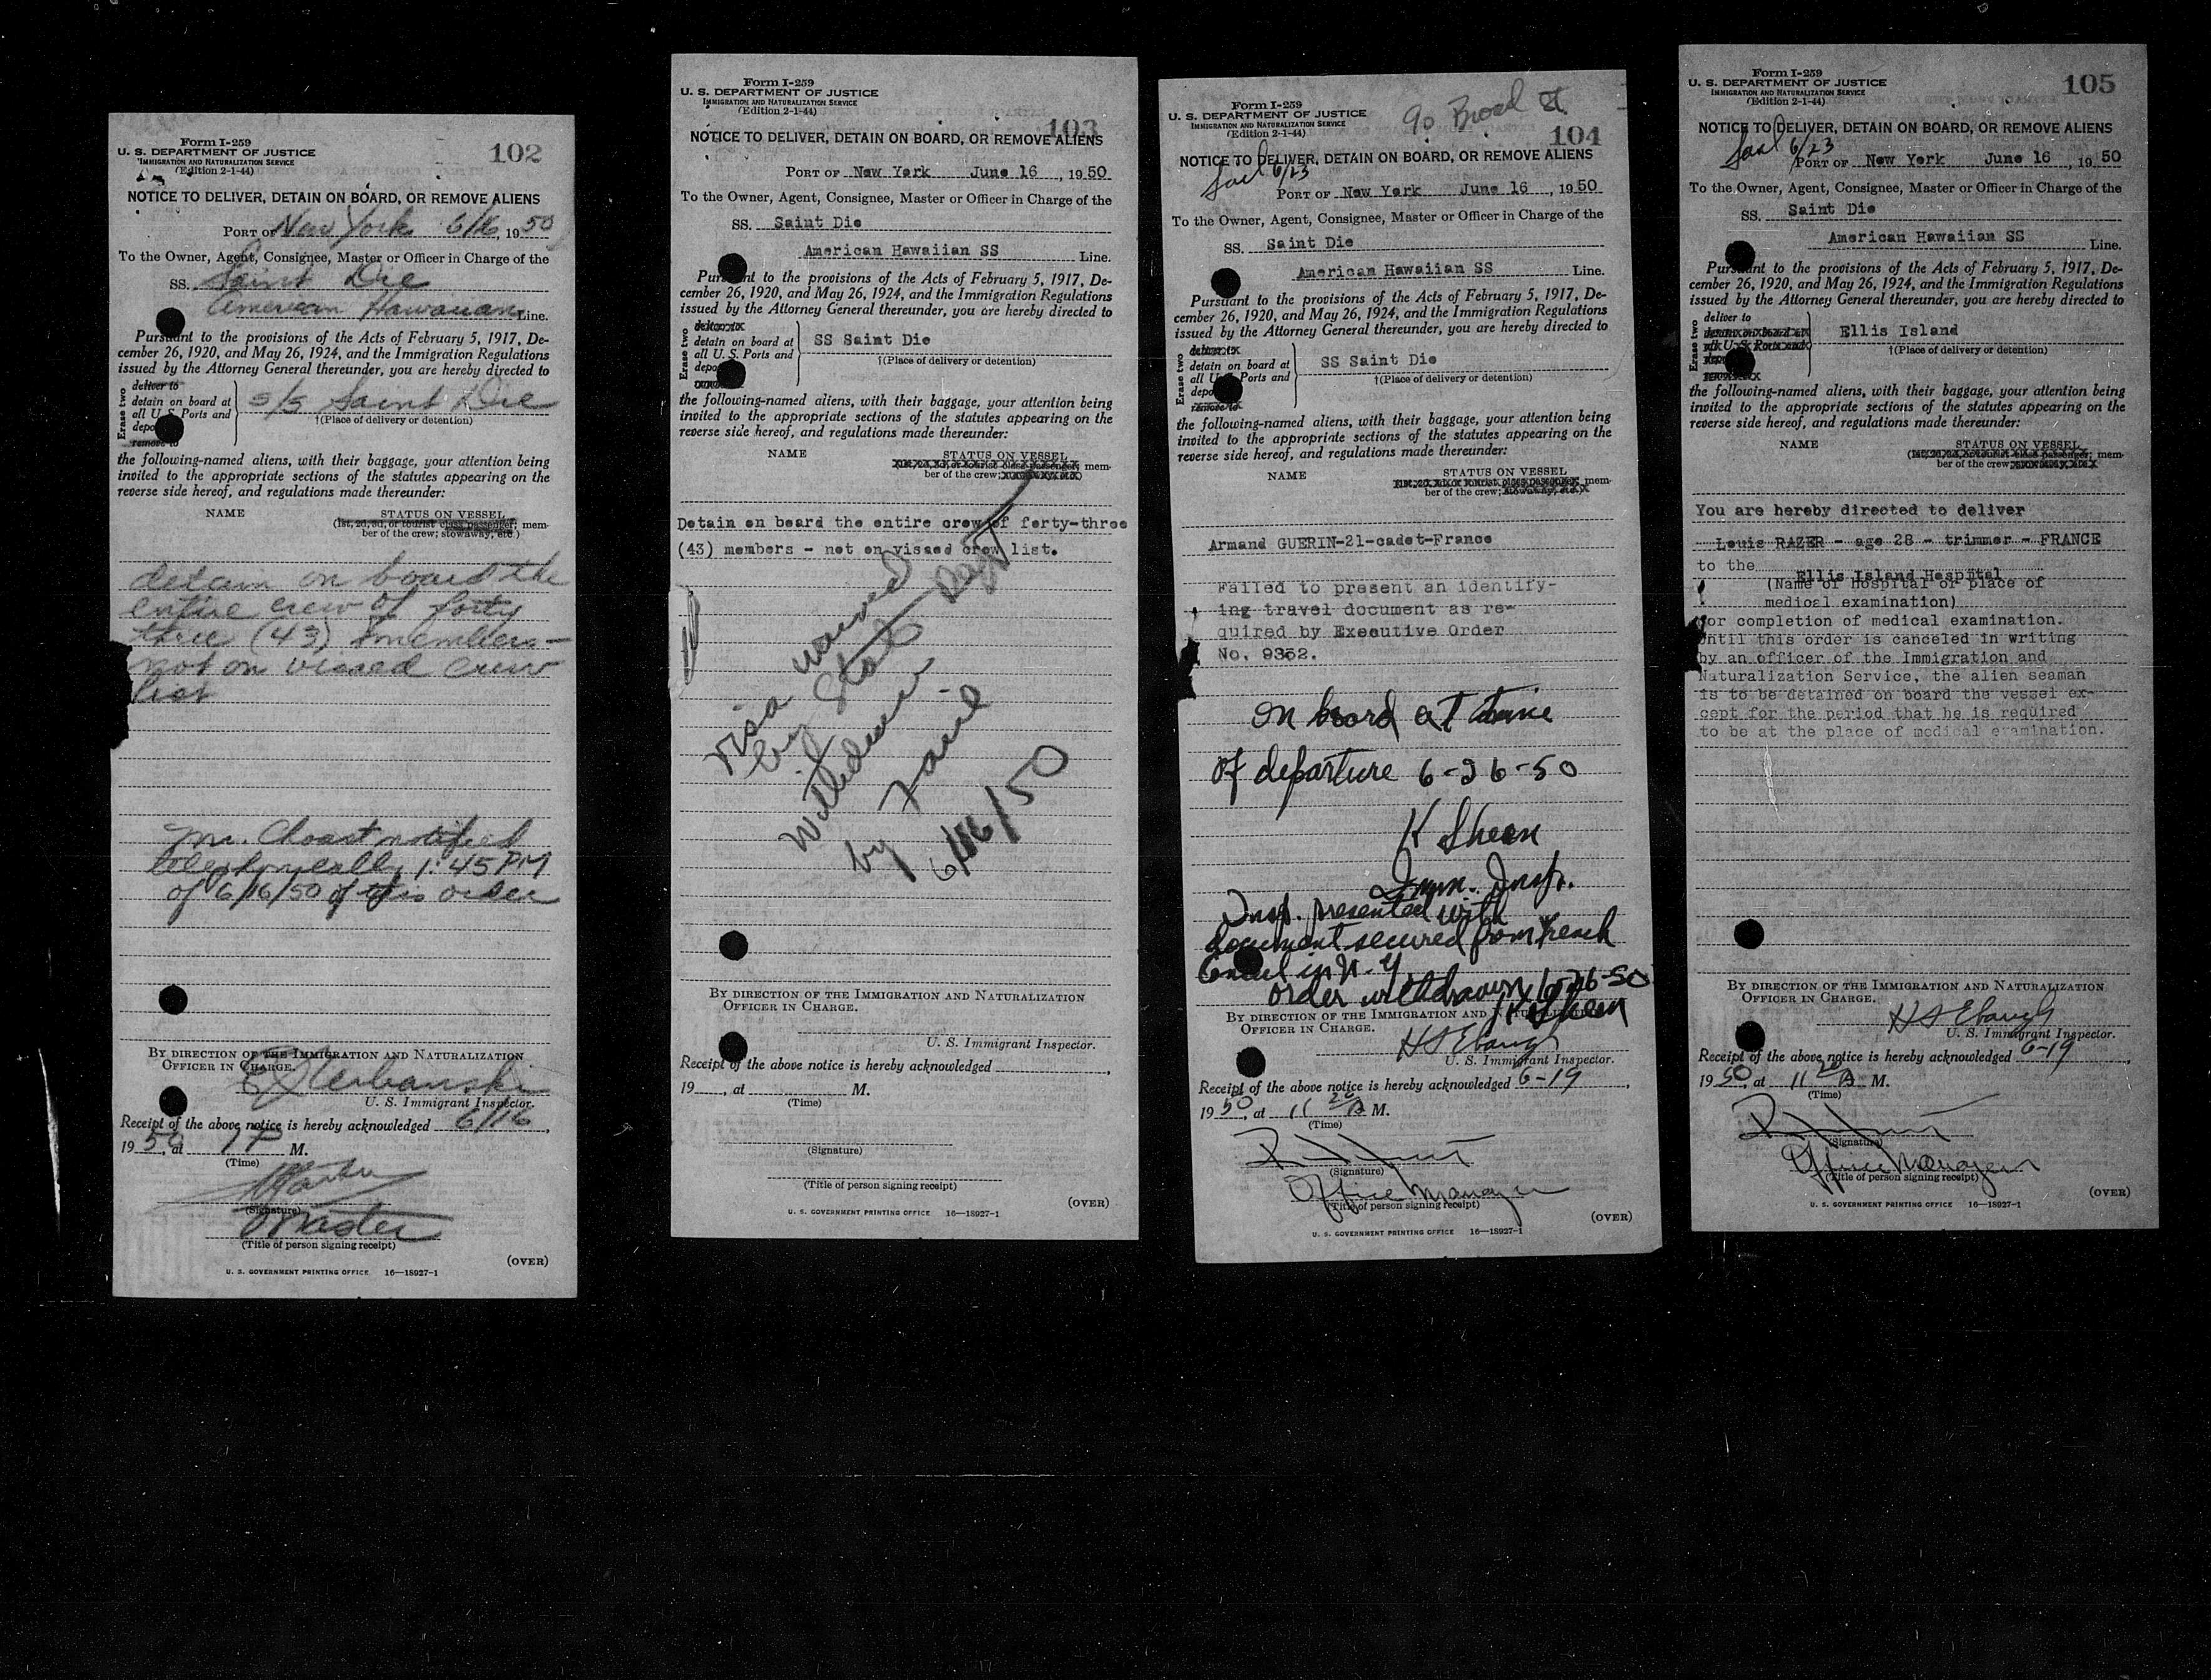 Form I-259
U. S. DEPARTMENT OF JUSTICE
IMMIGRATION AND NATURALIZATION SERVICE
(Edition 2-1-44)
102
NOTICE TO DELIVER, DETAIN ON BOARD, OR REMOVE ALIENS
PORT OF New York 6/16, 1950
To the Owner, Agent, Consignee, Master or Officer in Charge of the
SS. Saint Die
American Hawaiian Line.
Pursuant to the provisions of the Acts of February 5, 1917, De-
cember 26, 1920, and May 26, 1924, and the Immigration Regulations
issued by the Attorney General thereunder, you are hereby directed to
Erase two
deliver to
detain on board at
all U. S. Ports and
depo
remove to
s/s Saint Die
†(Place of delivery or detention)
the following-named aliens, with their baggage, your attention being
invited to the appropriate sections of the statutes appearing on the
reverse side hereof, and regulations made thereunder:
NAME
STATUS ON VESSEL
(1st, 2d, 3d, or tourist class passenger; mem-
ber of the crew; stowaway, etc.)
detain on board the
entire crew of forty
three (43) members -
not on visaed crew
list
Mr. Choast notified
telephonically 1:45 PM
of 6/16/50 of this order
BY DIRECTION OF THE IMMIGRATION AND NATURALIZATION
OFFICER IN CHARGE.
U. S. Immigrant Inspector.
Receipt of the above notice is hereby acknowledged 6/16,
1950, at 1 P M.
(Time)
(Signature)
Master
(Title of person signing receipt)
(OVER)
U. S. GOVERNMENT PRINTING OFFICE 16—18927-1
Form I-259
U. S. DEPARTMENT OF JUSTICE
IMMIGRATION AND NATURALIZATION SERVICE
(Edition 2-1-44)
103
NOTICE TO DELIVER, DETAIN ON BOARD, OR REMOVE ALIENS
PORT OF New York June 16, 1950
To the Owner, Agent, Consignee, Master or Officer in Charge of the
SS. Saint Die
American Hawaiian SS Line.
Pursuant to the provisions of the Acts of February 5, 1917, De-
cember 26, 1920, and May 26, 1924, and the Immigration Regulations
issued by the Attorney General thereunder, you are hereby directed to
Erase two
detain on board at
all U. S. Ports and
depo
SS Saint Die
†(Place of delivery or detention)
the following-named aliens, with their baggage, your attention being
invited to the appropriate sections of the statutes appearing on the
reverse side hereof, and regulations made thereunder:
NAME
STATUS ON VESSEL
mem-
ber of the crew;
Detain on board the entire crew of forty-three
(43) members - not on visaed crew list.
Visa waived
by State Dept
Withdrawn
by
6/16/50
BY DIRECTION OF THE IMMIGRATION AND NATURALIZATION
OFFICER IN CHARGE.
U. S. Immigrant Inspector.
Receipt of the above notice is hereby acknowledged ,
19 , at M.
(Time)
(Signature)
(Title of person signing receipt)
(OVER)
U. S. GOVERNMENT PRINTING OFFICE 16—18927-1
90 Broad St
Form I-259
U. S. DEPARTMENT OF JUSTICE
IMMIGRATION AND NATURALIZATION SERVICE
(Edition 2-1-44)
104
NOTICE TO DELIVER, DETAIN ON BOARD, OR REMOVE ALIENS
Sail 6/23
PORT OF New York June 16, 1950
To the Owner, Agent, Consignee, Master or Officer in Charge of the
SS. Saint Die
American Hawaiian SS Line.
Pursuant to the provisions of the Acts of February 5, 1917, De-
cember 26, 1920, and May 26, 1924, and the Immigration Regulations
issued by the Attorney General thereunder, you are hereby directed to
Erase two
detain on board at
all U. S. Ports and
depo
remove to
SS Saint Die
†(Place of delivery or detention)
the following-named aliens, with their baggage, your attention being
invited to the appropriate sections of the statutes appearing on the
reverse side hereof, and regulations made thereunder:
NAME
STATUS ON VESSEL
mem-
ber of the crew;
Armand GUERIN-21-cadet-France
Failed to present an identify-
ing travel document as re-
quired by Executive Order
No. 9352.
On board at time
of departure 6-26-50
K Sheen
Imm. Insp.
Insp. presented with
document secured from French
Consul in N. Y.
Order withdrawn 6-26-50
K Sheen
BY DIRECTION OF THE IMMIGRATION AND NATURALIZATION
OFFICER IN CHARGE.
H S Ebaugh
U. S. Immigrant Inspector.
Receipt of the above notice is hereby acknowledged 6-19,
1950, at 11 20 A M.
(Time)
(Signature)
Office Manager
(Title of person signing receipt)
(OVER)
U. S. GOVERNMENT PRINTING OFFICE 16—18927-1
Form I-259
U. S. DEPARTMENT OF JUSTICE
IMMIGRATION AND NATURALIZATION SERVICE
(Edition 2-1-44)
105
NOTICE TO DELIVER, DETAIN ON BOARD, OR REMOVE ALIENS
Sail 6/23
PORT OF New York June 16 1950
To the Owner, Agent, Consignee, Master or Officer in Charge of the
SS. Saint Die
American Hawaiian SS Line.
Pursuant to the provisions of the Acts of February 5, 1917, De-
cember 26, 1920, and May 26, 1924, and the Immigration Regulations
issued by the Attorney General thereunder, you are hereby directed to
Erase two
deliver to
Ellis Island
†(Place of delivery or detention)
the following-named aliens, with their baggage, your attention being
invited to the appropriate sections of the statutes appearing on the
reverse side hereof, and regulations made thereunder:
NAME
STATUS ON VESSEL
mem-
ber of the crew;
You are hereby directed to deliver
Louis RAZER - age 28 - trimmer - FRANCE
to the Ellis Island Hospital
(Name of Hospital or place of
medical examination)
for completion of medical examination.
Until this order is canceled in writing
by an officer of the Immigration and
Naturalization Service, the alien seaman
is to be detained on board the vessel ex-
cept for the period that he is required
to be at the place of medical examination.
BY DIRECTION OF THE IMMIGRATION AND NATURALIZATION
OFFICER IN CHARGE.
H S Ebaugh
U. S. Immigrant Inspector.
Receipt of the above notice is hereby acknowledged 6-19,
1950, at 11 20 A M.
(Time)
(Signature)
Office Manager
(Title of person signing receipt)
(OVER)
U. S. GOVERNMENT PRINTING OFFICE 16—18927-1